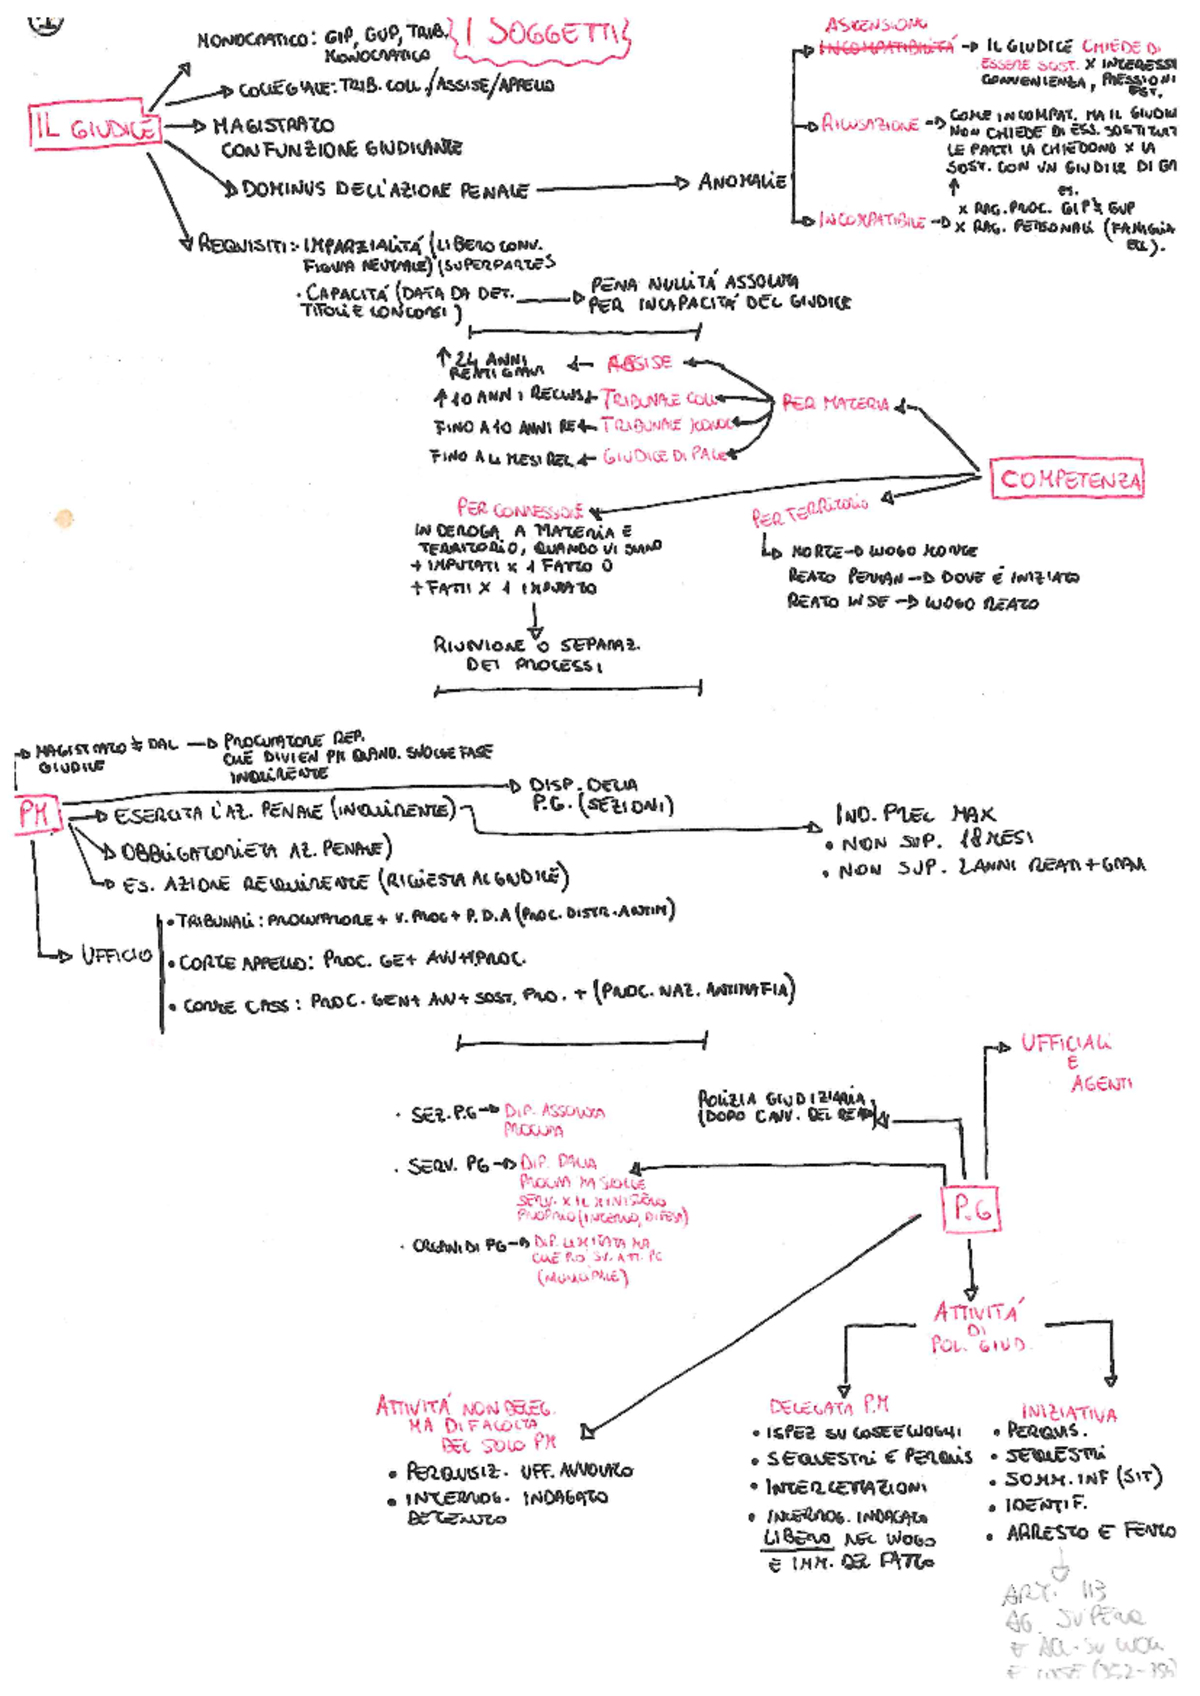 I SOGGETTI
MONOCRATICO: GIP, GUP, TRIB.
MONOCRATICO
COLLEGIALE: TRIB. COLL./ASSISE/APPELLO
IL GIUDICE
MAGISTRATO
CON FUNZIONE GIUDICANTE
DOMINUS DELL'AZIONE PENALE
ANOMALIE
ASTENSIONE
INCOMPATIBILITÁ
IL GIUDICE CHIEDE DI
ESSERE SOST. X INTERESSI
CONVENIENZA, PRESSIONI
EST.
RICUSAZIONE
COME INCOMPAT. MA IL GIUDI
NON CHIEDE DI ESS. SOSTITUIT
LE PARTI LA CHIEDONO X LA
SOST. CON UN GIUDICE DI GA
es.
INCOMPATIBILE
X RAG. PROC. GIP ≠ GUP
X RAG. PERSONALI (FAMIGLIA
ECC).
REQUISITI: · IMPARZIALITÁ (LIBERO CONV.
FIGURA NEUTRALE) (SUPERPARTES
· CAPACITÁ (DATA DA DET.
TITOLI E CONCORSI)
PENA NULLITÁ ASSOLUTA
PER INCAPACITÁ DEL GIUDICE
↑ 24 ANNI
REATI GRAVI
ASSISE
↑ 10 ANNI RECLUS
TRIBUNALE COLL
PER MATERIA
FINO A 10 ANNI RE
TRIBUNALE MONOC
FINO A 4 MESI REC
GIUDICE DI PACE
COMPETENZA
PER CONNESSIONE
IN DEROGA A MATERIA E
TERRITORIO, QUANDO VI SIANO
+ IMPUTATI X 1 FATTO O
+ FATTI X 1 IMPUTATO
PER TERRITORIO
MORTE → LUOGO MORTE
REATO PERMAN → DOVE É INIZIATO
REATO → LUOGO REATO
RIUNIONE O SEPARAZ.
DEI PROCESSI
MAGISTRATO ≠ DAL
GIUDICE
PROCURATORE REP.
CHE DIVIEN PM QUAND. SVOLGE FASE
INQUIRENTE
PM
DISP. DELLA
P.G. (SEZIONI)
ESERCITA L'AZ. PENALE (INQUIRENTE)
IND. PREL MAX
• NON SUP. 18 MESI
• NON SUP. 2 ANNI REATI + GRAVI
OBBLIGATORIETA AZ. PENALE)
ES. AZIONE REQUIRENTE (RICHIESTA AL GIUDICE)
UFFICIO
• TRIBUNALI: PROCURATORE + V. PROC + P.D.A (PROC. DISTR. ANTIM)
• CORTE APPELLO: PROC. GE + AVV + PROC.
• CORTE CASS: PROC. GEN + AVV + SOST. PRO. + (PROC. NAZ. ANTIMAFIA)
UFFICIALI
E
AGENTI
POLIZIA GIUDIZIARIA
(DOPO DEL REATO)
• SEZ. P.G → DIP. ASSOLUTA
PROCURA
• SERV. PG → DIP. DALLA
PROCURA MA SVOLGE
SERV. X IL MINISTERO
PROPRIO (INTERNO, DIFESA)
P.G
• ORGANI DI PG → DIP. LIMITATA MA
CHE SV. ATT. PG
(MUNICIPALE)
ATTIVITÁ
DI
POL. GIUD.
ATTIVITÁ NON DELEG.
MA DI FACOLTA
DEL SOLO PM
• PERQUISIZ. UFF. AVVOCATO
• INTERROG. INDAGATO
DETENUTO
DELEGATA P.M
• ISPEZ SU COSE E LUOGHI
• SEQUESTRI E PERQUIS
• INTERCETTAZIONI
• INTERROG. INDAGATO
LIBERO NEL LUOGO
E IMM. DEL FATTO
INIZIATIVA
• PERQUIS.
• SEQUESTRI
• SOMM. INF (SIT)
• IDENTIF.
• ARRESTO E FERMO
ART. 113
AG. SU PERQ
E ACC. SU LUOG
E COSE (352-354)